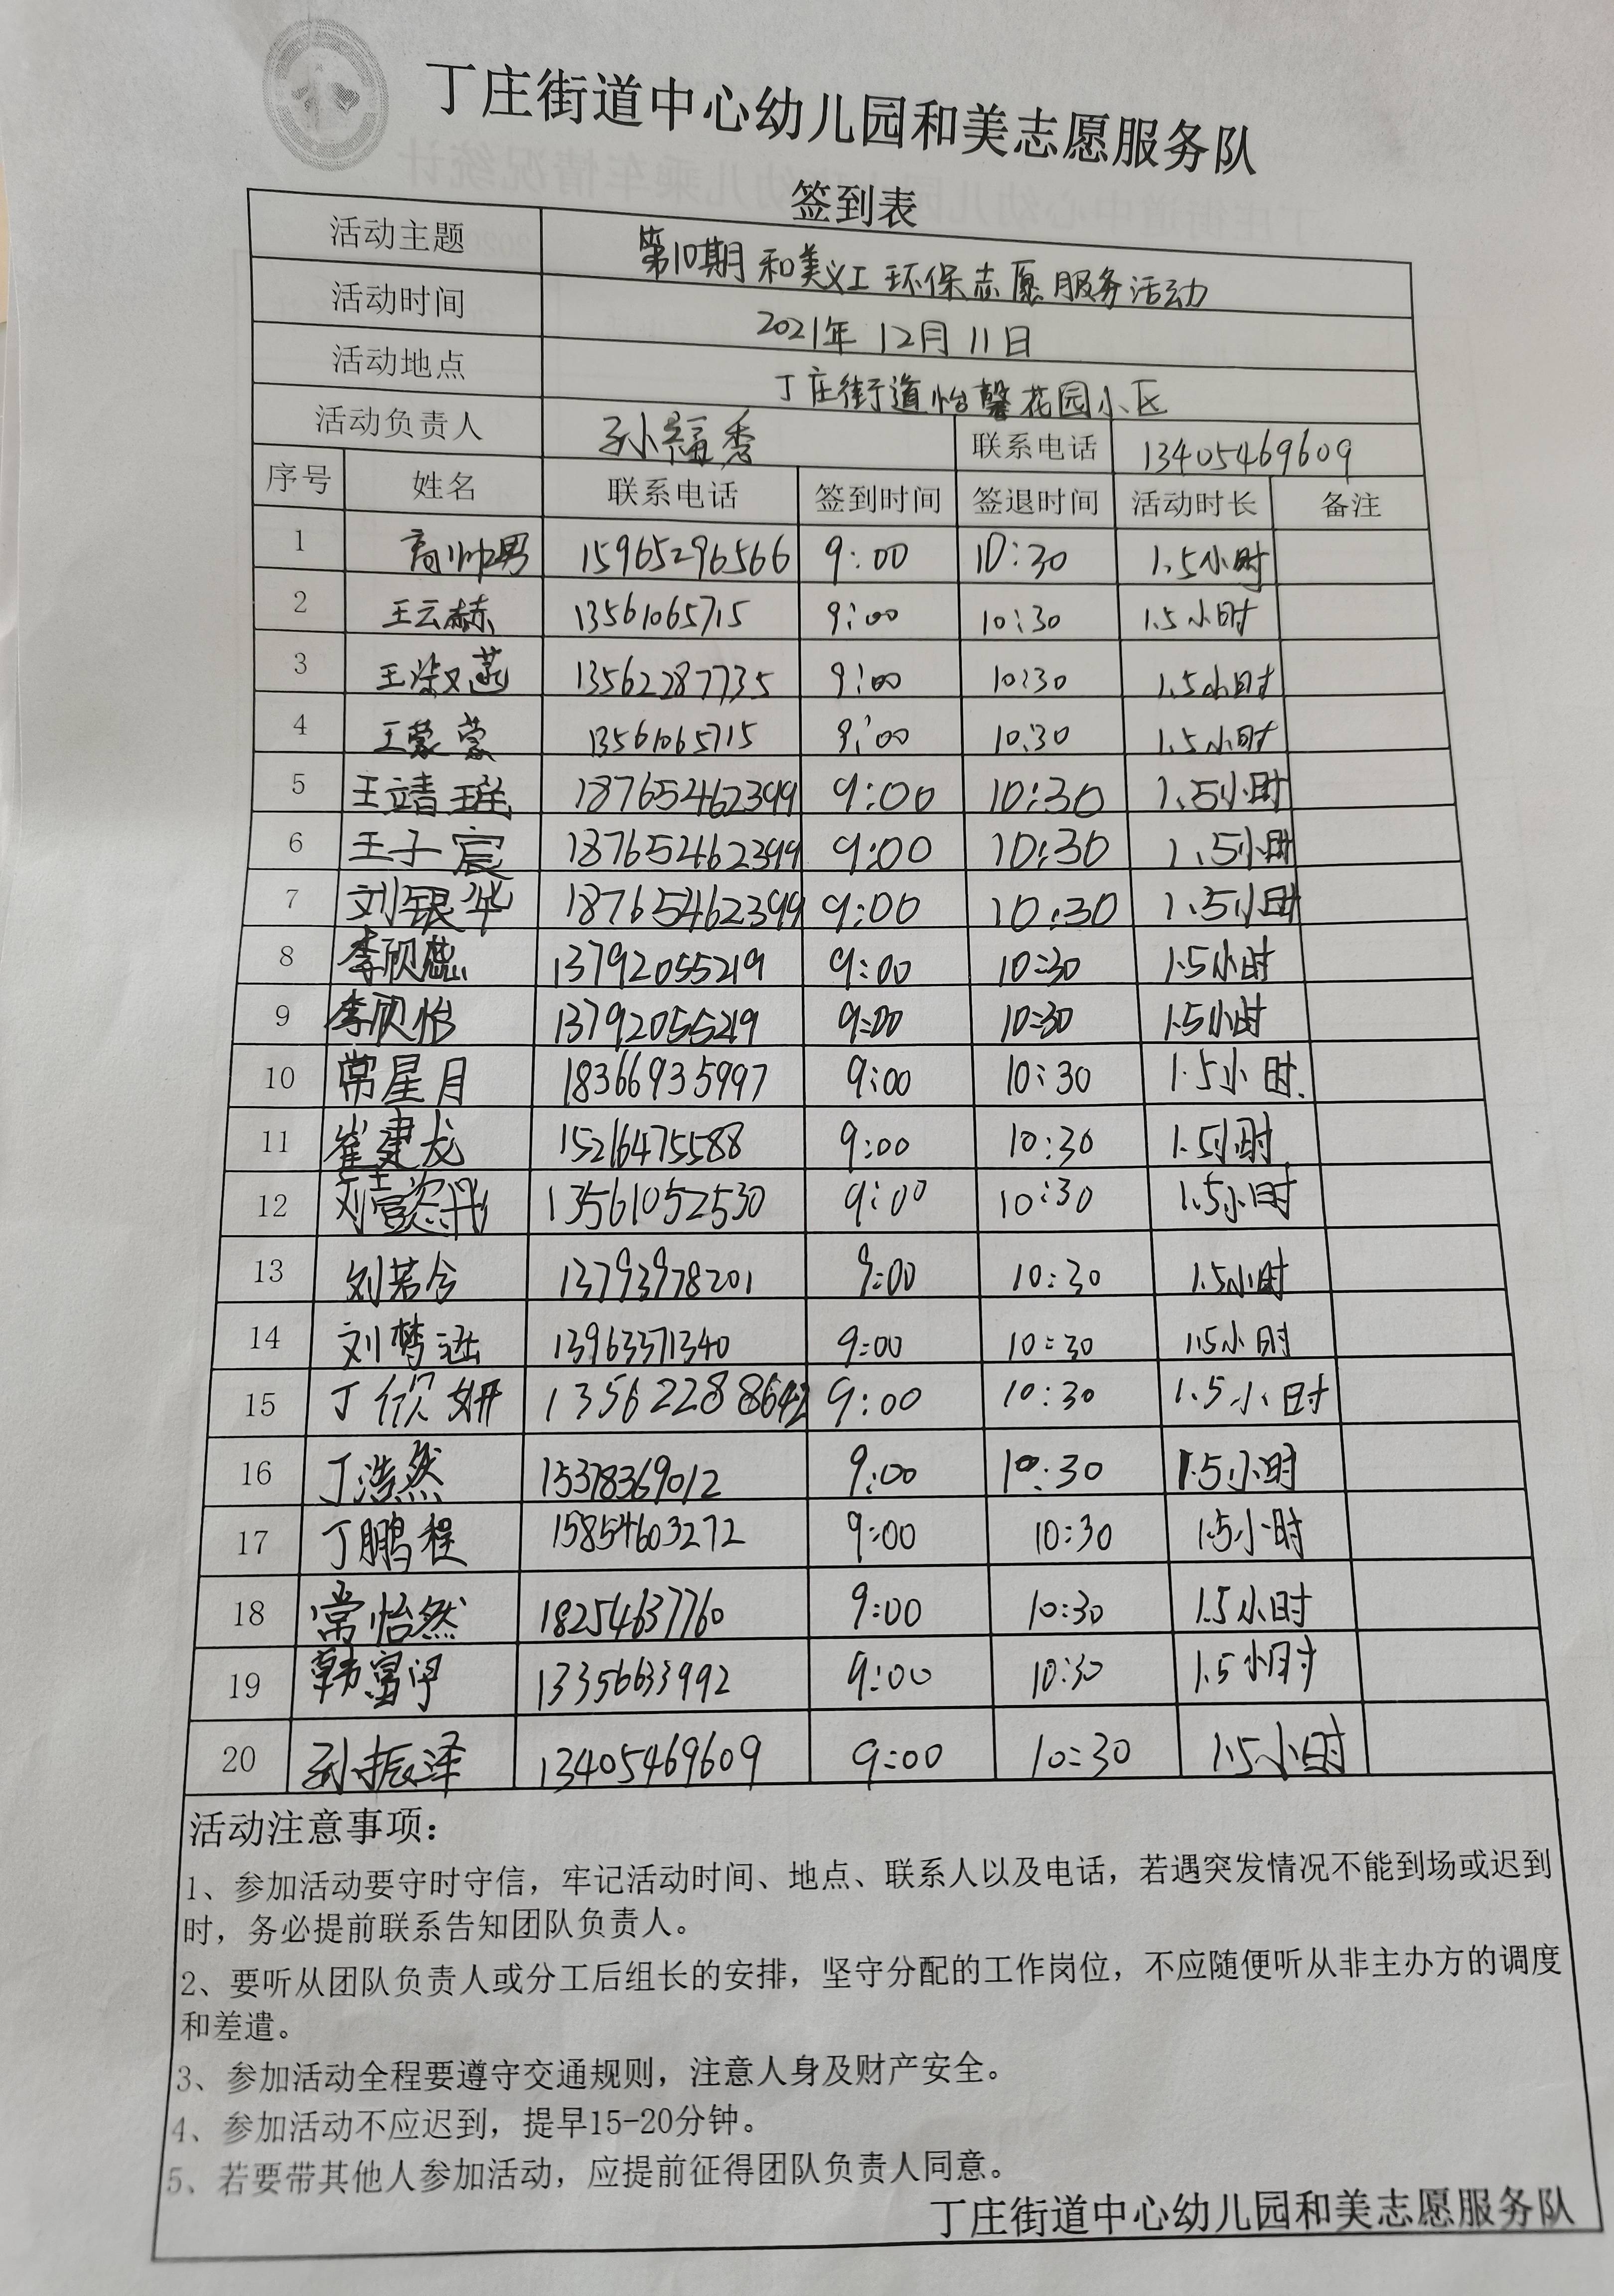 丁庄街道中心幼儿园和美志愿服务队
签到表
活动主题 第10期和美义工环保志愿服务活动
活动时间 2021年12月11日
活动地点 丁庄街道怡馨花园小区
活动负责人 孙福秀 联系电话 13405469609
序号 姓名 联系电话 签到时间 签退时间 活动时长 备注
1 商帅男 15965296566 9:00 10:30 1.5小时
2 王云赫 13561065715 9:00 10:30 1.5小时
3 王梁又菡 13562287735 9:00 10:30 1.5小时
4 王蒙蒙 13561065715 9:00 10:30 1.5小时
5 王靖瑶 18765462399 9:00 10:30 1.5小时
6 王子宸 18765462399 9:00 10:30 1.5小时
7 刘银华 18765462399 9:00 10:30 1.5小时
8 李欣蕊 13792055219 9:00 10:30 1.5小时
9 李欣怡 13792055219 9:00 10:30 1.5小时
10 常星月 18366935997 9:00 10:30 1.5小时.
11 崔建龙 15216475588 9:00 10:30 1.5小时
12 刘 13561052530 9:00 10:30 1.5小时
13 刘若兮 13793978201 9:00 10:30 1.5小时
14 刘梦涵 13963371340 9:00 10:30 1.5小时
15 丁欣妍 13562288642 9:00 10:30 1.5小时
16 丁浩然 15378369012 9:00 10:30 1.5小时
17 丁鹏程 15854603272 9:00 10:30 1.5小时
18 常怡然 18254637760 9:00 10:30 1.5小时
19 韩 13356633992 9:00 10:30 1.5小时
20 孙振泽 13405469609 9:00 10:30 1.5小时
活动注意事项：
1、参加活动要守时守信，牢记活动时间、地点、联系人以及电话，若遇突发情况不能到场或迟到
时，务必提前联系告知团队负责人。
2、要听从团队负责人或分工后组长的安排，坚守分配的工作岗位，不应随便听从非主办方的调度
和差遣。
3、参加活动全程要遵守交通规则，注意人身及财产安全。
4、参加活动不应迟到，提早15-20分钟。
5、若要带其他人参加活动，应提前征得团队负责人同意。
丁庄街道中心幼儿园和美志愿服务队